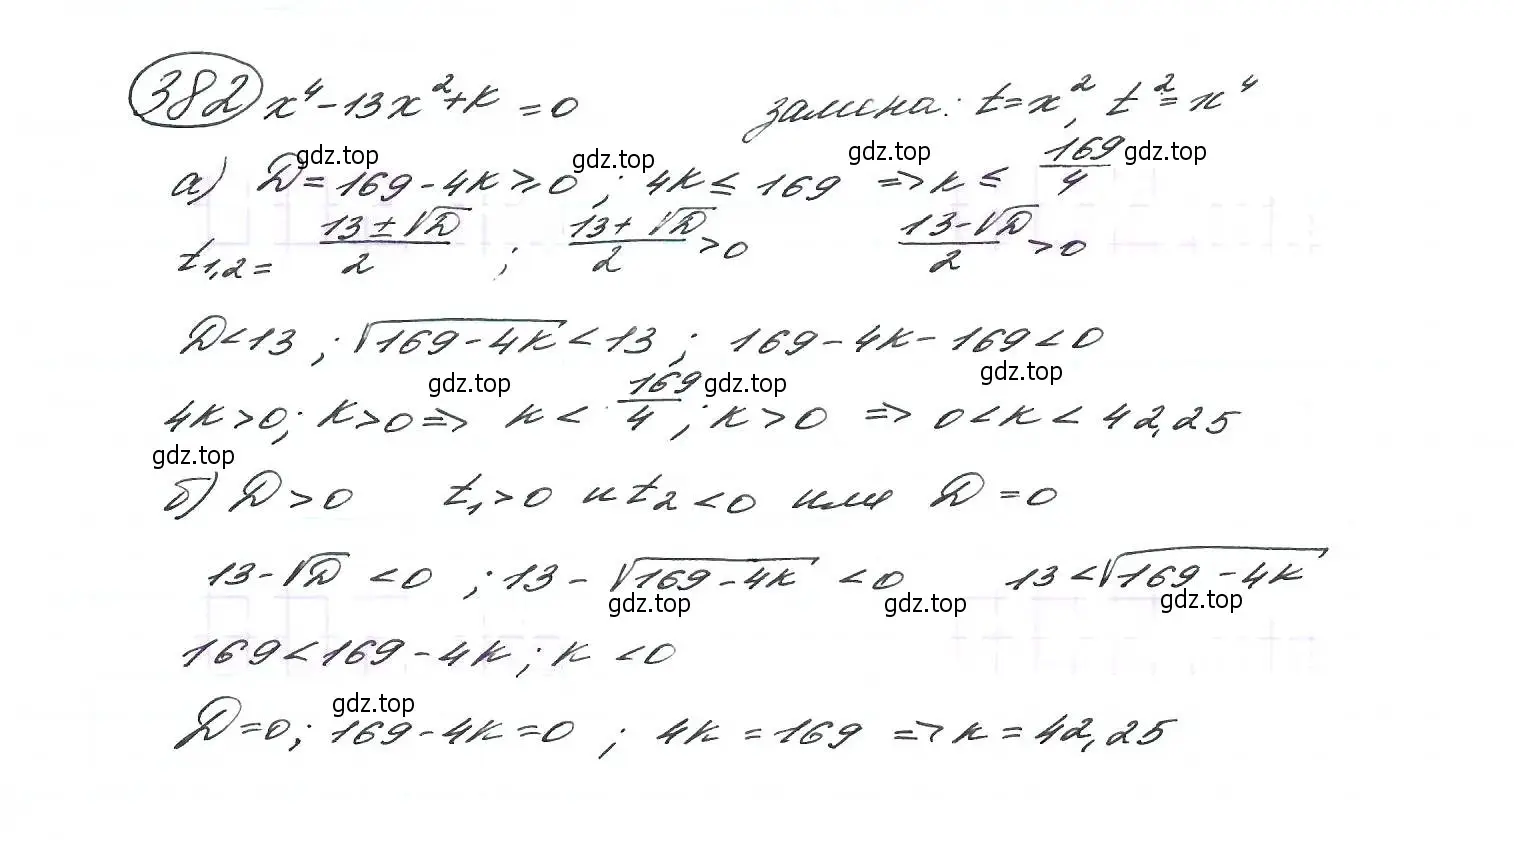 382 x⁴ - 13x² + k = 0 замена: t = x², t² = x⁴
gdz.top gdz.top gdz.top gdz.top
а) D = 169 - 4k ≥ 0 ; 4k ≤ 169 => k ≤ 169/4
t₁,₂ = (13 ± √D)/2 ; (13 + √D)/2 > 0 (13 - √D)/2 > 0
D < 13 ; √(169 - 4k) < 13 ; 169 - 4k - 169 < 0
gdz.top gdz.top gdz.top
4k > 0; k > 0 => k < 169/4 ; k > 0 => 0 < k < 42,25
gdz.top
б) D > 0 t₁ > 0 и t₂ < 0 или D = 0
13 - √D < 0 ; 13 - √(169 - 4k) < 0 13 < √(169 - 4k)
gdz.top gdz.top gdz.top
169 < 169 - 4k ; k < 0
gdz.top
D = 0; 169 - 4k = 0 ; 4k = 169 => k = 42,25